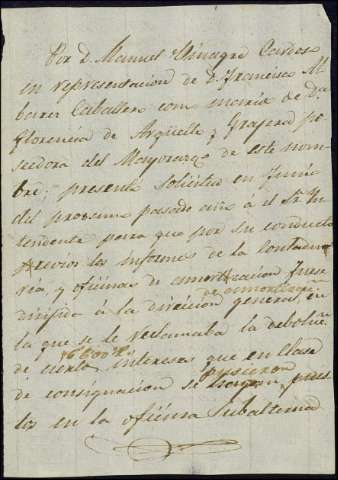 Por D. Manuel Vinagre Cardoso
en representacion de D. Francisco Al
barez Caballero como marido de Dª
Florencia de Argüelle y Grajera po
seedora del Mayorazgo de este nom
bre; presentó solicitud en Junio
del procsimo pasado año a el Sr. In
tendente para que por su conducto
previos los informes de la Contadu
ria, y oficinas de amortizacion fuese
dirijida á la direcion general, en
de amortizacion
la que se le reclamaba la debolucn.
de cierto intereses que en clase
16000 rs.
de consignacion se hayan pues
pusieron
tos en la oficina Subalterna